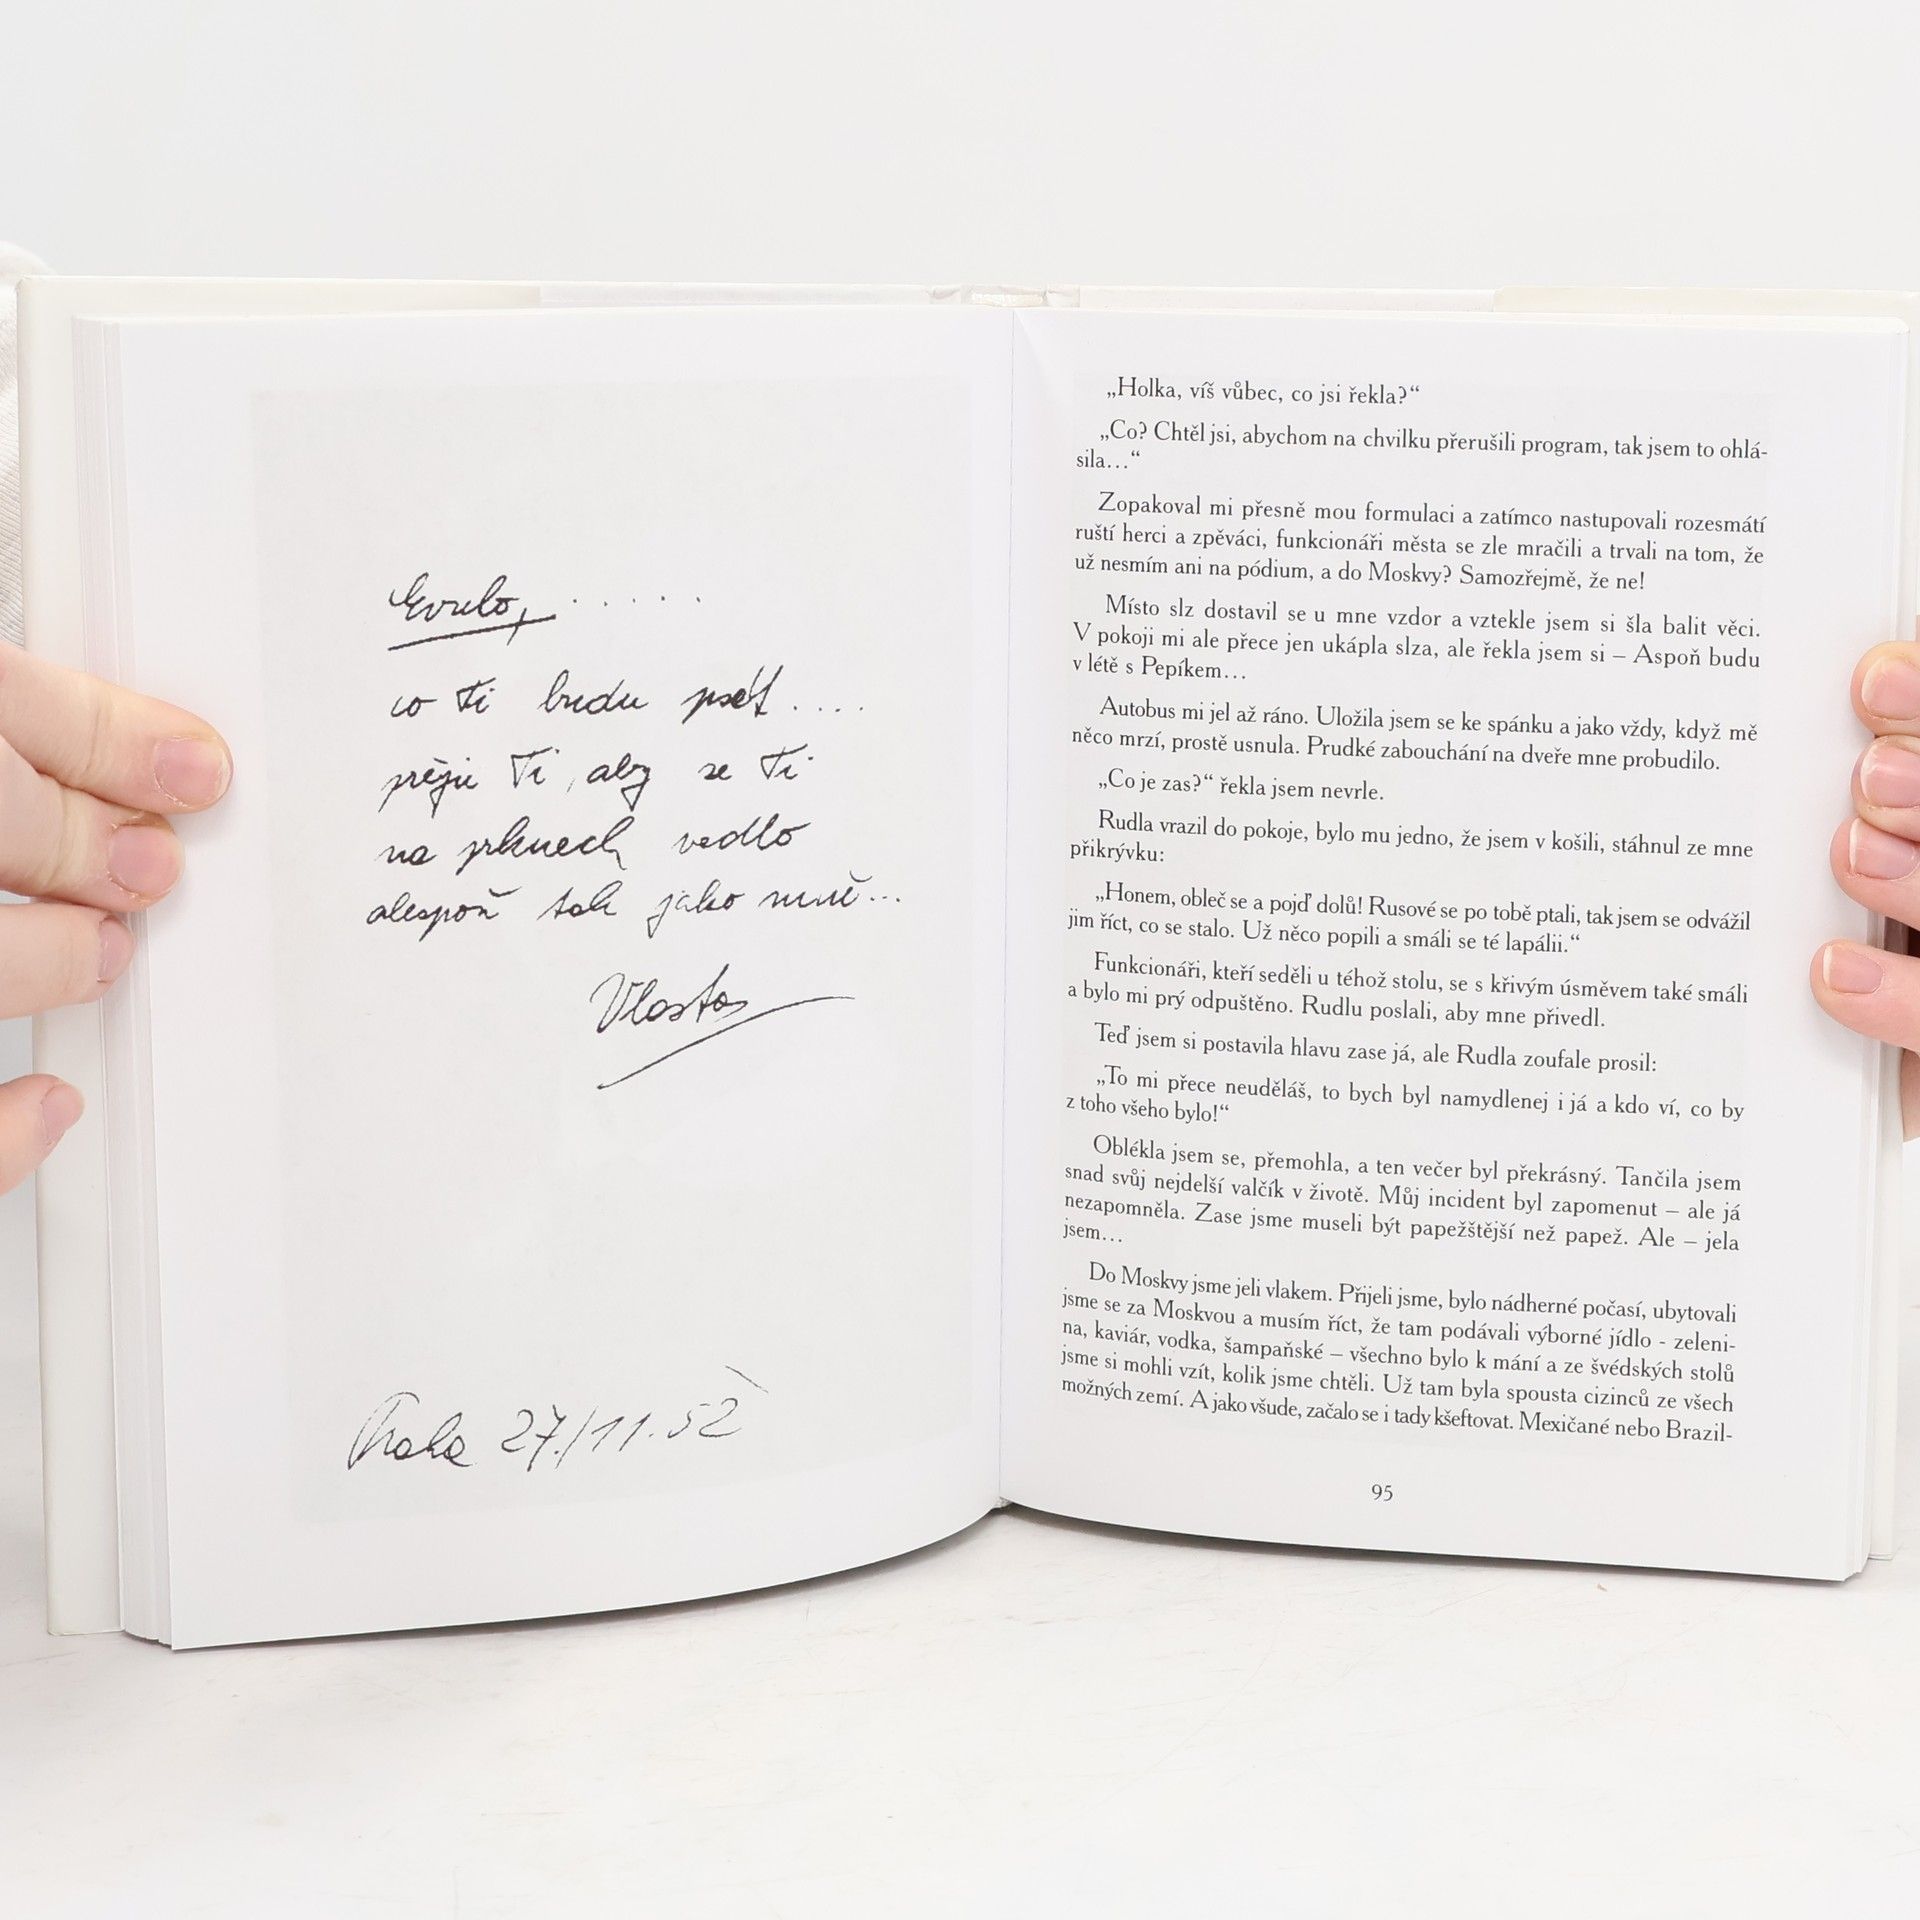 Evulo, . . . . .
co Ti budu psát ....
přeju Ti, aby se Ti
na prknech vedlo
alespoň tak jako mně...
Vlasta
Praha 27./11.52
„Holka, víš vůbec, co jsi řekla?“
„Co? Chtěl jsi, abychom na chvilku přerušili program, tak jsem to ohlá-
sila...“
Zopakoval mi přesně mou formulaci a zatímco nastupovali rozesmátí
ruští herci a zpěváci, funkcionáři města se zle mračili a trvali na tom, že
už nesmím ani na pódium, a do Moskvy? Samozřejmě, že ne!
Místo slz dostavil se u mne vzdor a vztekle jsem si šla balit věci.
V pokoji mi ale přece jen ukápla slza, ale řekla jsem si – Aspoň budu
v létě s Pepíkem...
Autobus mi jel až ráno. Uložila jsem se ke spánku a jako vždy, když mě
něco mrzí, prostě usnula. Prudké zabouchání na dveře mne probudilo.
„Co je zas?“ řekla jsem nevrle.
Rudla vrazil do pokoje, bylo mu jedno, že jsem v košili, stáhnul ze mne
přikrývku:
„Honem, obleč se a pojď dolů! Rusové se po tobě ptali, tak jsem se odvážil
jim říct, co se stalo. Už něco popili a smáli se té lapálii.“
Funkcionáři, kteří seděli u téhož stolu, se s křivým úsměvem také smáli
a bylo mi prý odpuštěno. Rudlu poslali, aby mne přivedl.
Teď jsem si postavila hlavu zase já, ale Rudla zoufale prosil:
„To mi přece neuděláš, to bych byl namydlenej i já a kdo ví, co by
z toho všeho bylo!“
Oblékla jsem se, přemohla, a ten večer byl překrásný. Tančila jsem
snad svůj nejdelší valčík v životě. Můj incident byl zapomenut – ale já
nezapomněla. Zase jsme museli být papežštější než papež. Ale – jela
jsem...
Do Moskvy jsme jeli vlakem. Přijeli jsme, bylo nádherné počasí, ubytovali
jsme se za Moskvou a musím říct, že tam podávali výborné jídlo - zeleni-
na, kaviár, vodka, šampaňské – všechno bylo k mání a ze švédských stolů
jsme si mohli vzít, kolik jsme chtěli. Už tam byla spousta cizinců ze všech
možných zemí. A jako všude, začalo se i tady kšeftovat. Mexičané nebo Brazil-
95